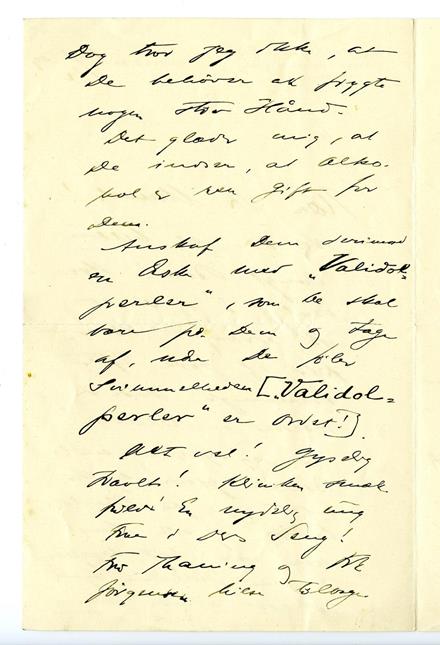 Dog tror jeg ikke, at
De behøver at frygte
nogen stor Hånd.
Det glæder mig, at
De indser, at Alko-
hol er ren Gift for
dem.
Anskaf Dem derimod
en Eske med „Validol=
perler“, som De skal
bære på Dem og tage
af, når De føler
Svimmelheden [„Validol=
perler“ er Ordet!].
Alt vel! Gyselig
travlt! Kliniken
En nydelig ung
Frue i Deres Seng!
Fru Thaning og Frk
Jørgensen hilse